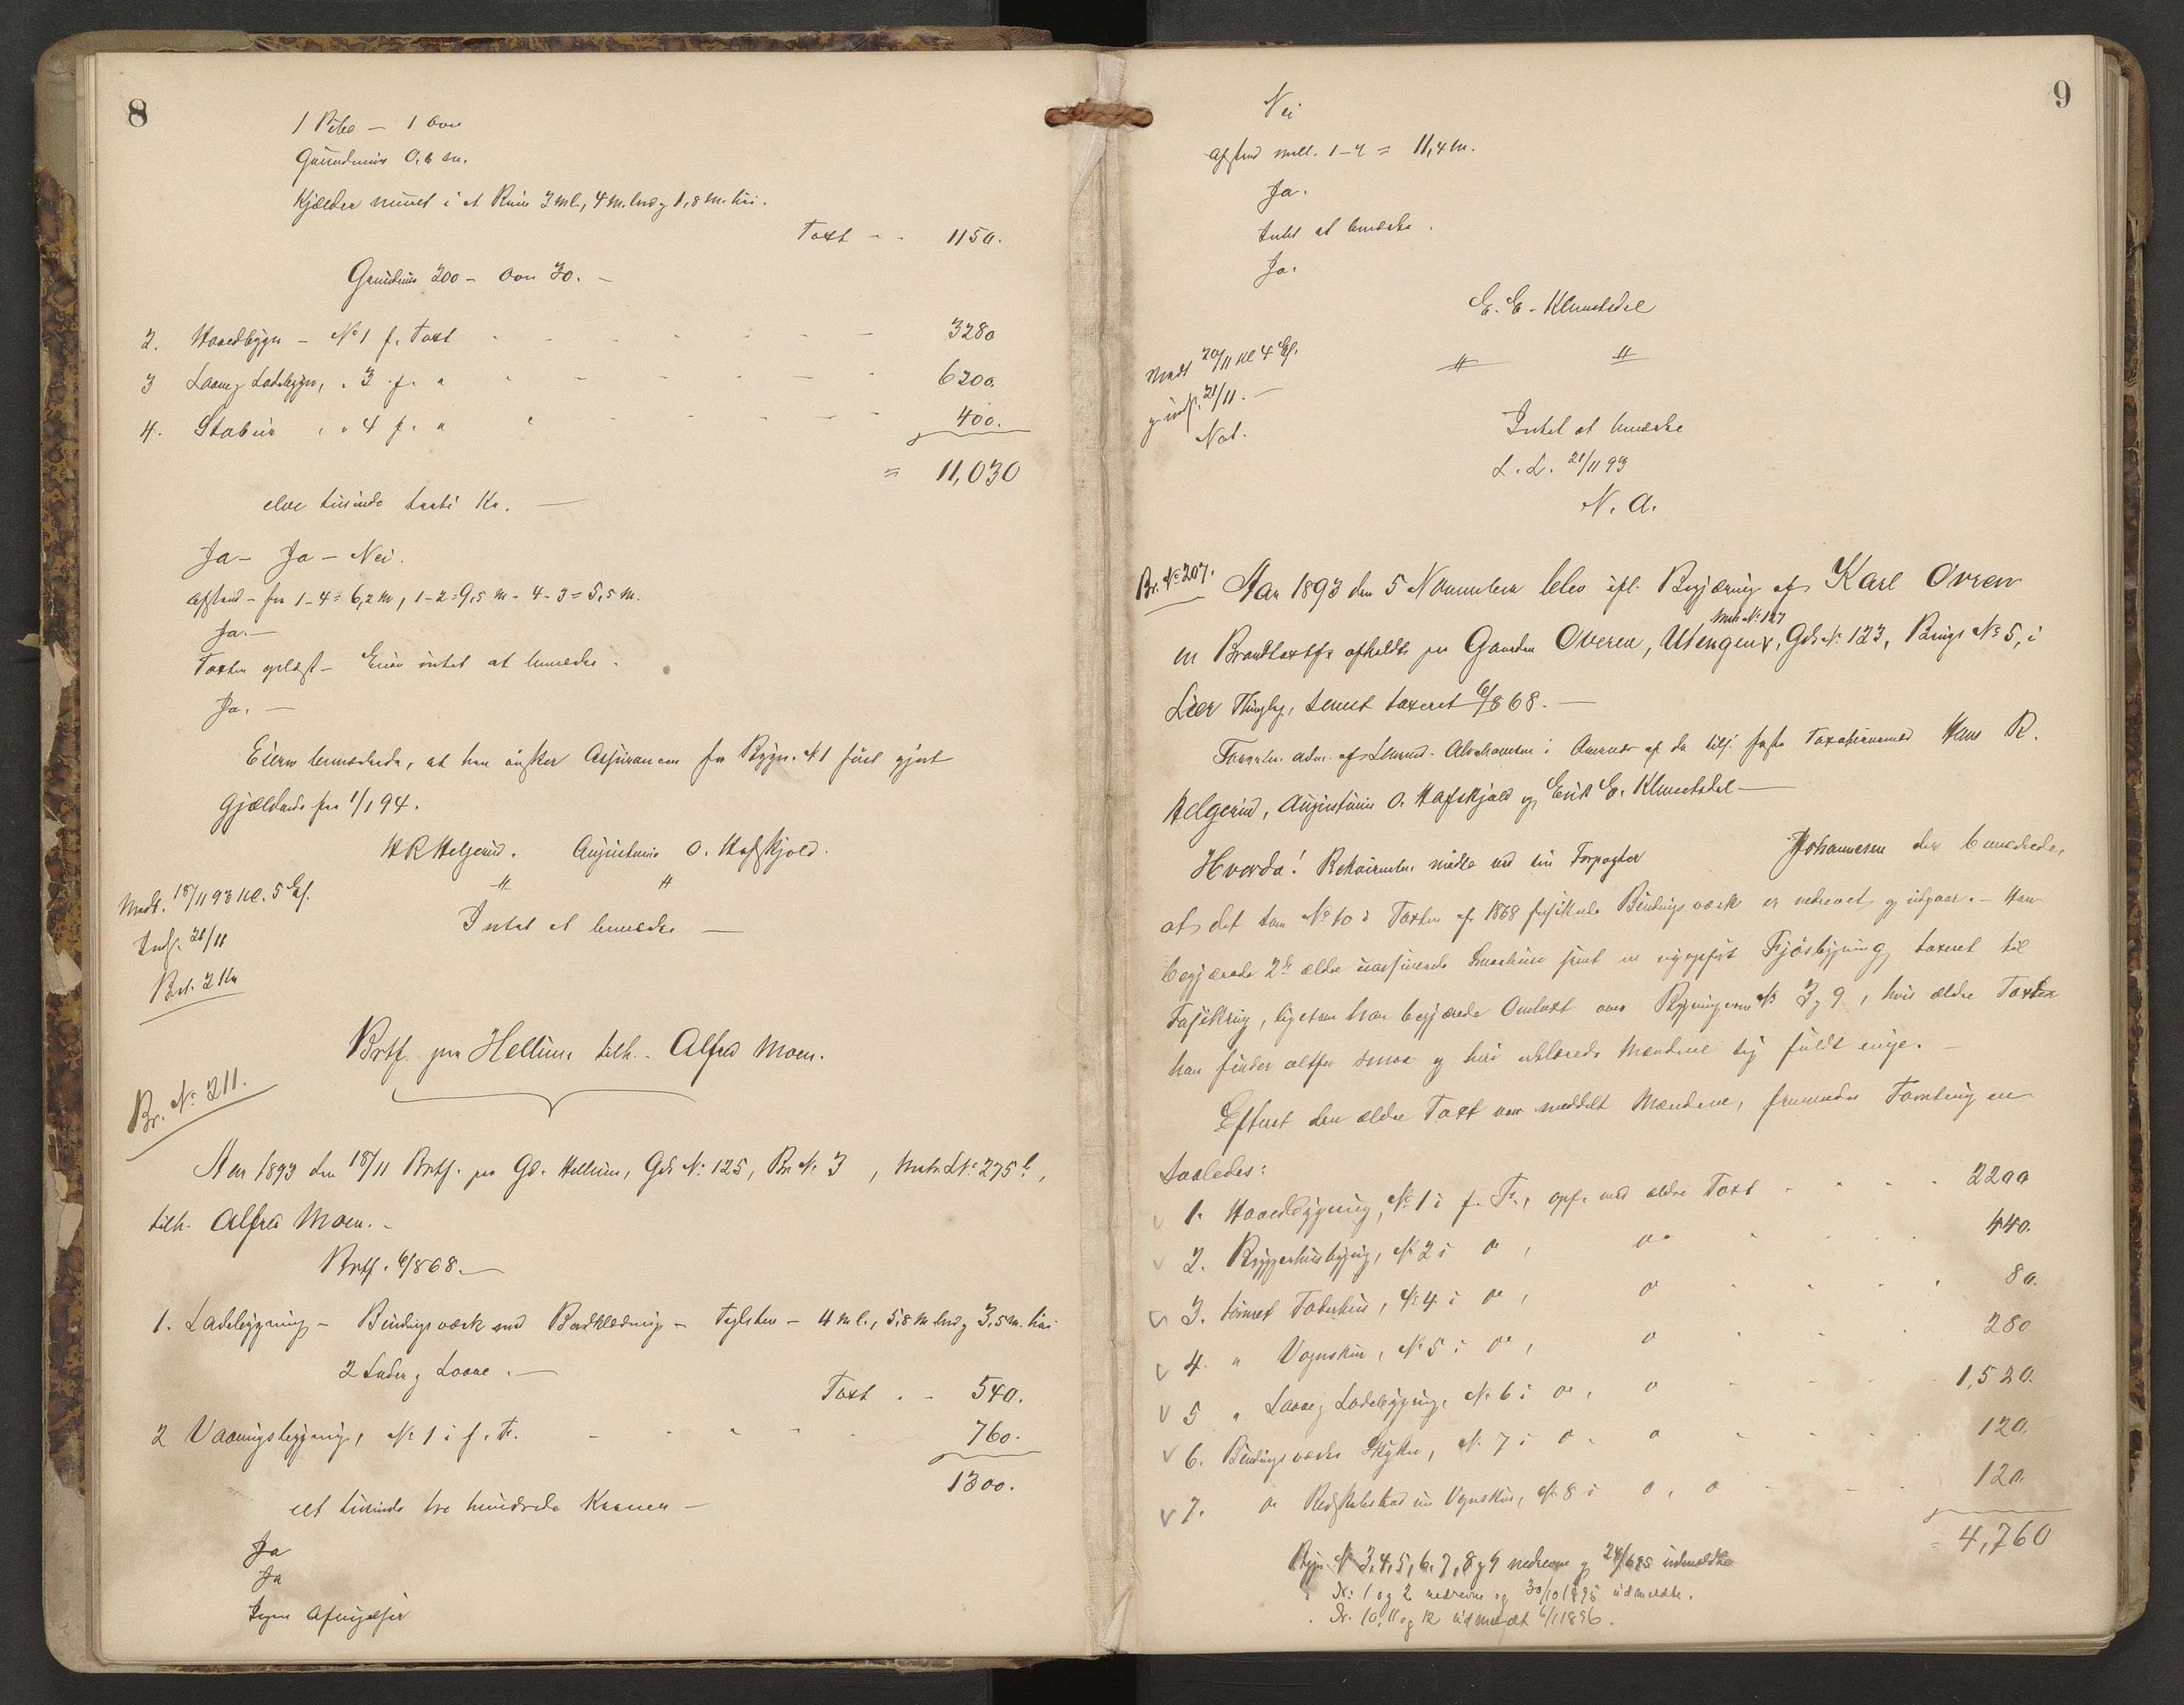 8
1 Pibe — 1 Ovn
Grundmur 0,6 m.
Kjælder muret i et Rum 3 m l., 4 m. br. og 1,8 m. høi.
Taxt - - 1150.
Grundmur 200 - Ovn 30. -
2. Hovedbygn - No 1 f. Taxt - - - - - 3280
3 Laave og Ladebygn, " 3 f. " - - - - - 6200.
4. Stabur " " 4 f. " - - - - - 400.
= 11,030
elve tusinde tretti Kr. —
Ja - Ja - Nei.
Afstand - fra 1-4 = 6,2 m, 1-2 = 9,5 m - 4-3 = 5,5 m.
Ja. —
Taxten oplæst - Eieren intet at bemærke.
Ja. —
Eieren bemærkede, at han ønsker Assurancen for Bygn. No 1 først gjort
gjældende fra 1/1 94.
H R Helgerud. Augustinus O. Hafskjold.
" "
Modt. 18/11 93 Kl. 5 Ef.
Intet at bemærke —
Indf. 21/11
Bet. 2 Kr
Brtf. paa Hellum tilh. Alfred Moen.
Br. No 211.
Aar 1893 den 18/11 Brtf. paa Gd. Hellum, Gds No 125, Br No 3, Matr. L No 275 b,
tilh. Alfred Moen. -
Brtf. 6/8 68. —
1. Ladebygning - Bindingsværk med Bordklædning - Teglsten - 4 m l., 5,8 m br. og 3,5 m. høi
2 Lader og Laave. —
Taxt . - 540.
2 Vaaningsbygning, No 1 i f. T. - - - - 760.
1300.
ett tusinde tre hundrede Kroner —
Ja
Ja
Ingen Afvigelser
9
Nei
Afstand mell. 1-2 = 11,4 m.
Ja.
Intet at bemærke.
Ja.
E. E. Klemetsdal
" "
Modt 20/11 Kl 4 Ef.
og indf. 21/11. —
Not.
Intet at bemærke
L. L. 21/11 93
N. A.
Br. No 207. Aar 1893 den 5 November blev ifl. Begjæring af Karl Overen
Matr No 127
en Brandtaxtf. afholdt paa Gaarden Overen, Utengen, Gds No 123, Brugs No 5, i
Lier Thinglag, senest taxeret 6/8 68. —
Forretn. adm. af Lensmd. Abrahamsen i Overvær af de tilf. faste Taxationsmænd Hans R.
Helgerud, Augustinus O. Hafskjold og Erik E. Klemetsdal —
Hvorda! Rekvirenten mødte ved sin Forpagter Johannesen der bemærkede,
at det som No 10 i Taxten af 1868 forsikrede Bindingsværk er nedrevet og udgaar. - Han
begjærede 2de ældre uassurerede samt en nyopført Fjøsbygning taxeret til
Forsikring, ligesom han begjærede Omtaxt over Bygningerne No 3 og 9, hvis ældre Taxter
han finder altfor smaa og heri erklærede Mændene sig fuldt enige. —
Efterat den ældre Taxt var meddelt Mændene, fremmedes Forretningen
saaledes:
1. Hovedbygning, No 1 i f. T., opf. med ældre Taxt - - - - 2200
2. Bryggerhusbygnig, No 2 i do, do - - - 440.
3. tømret Foderhus, No 4 i do, do - - - - 80.
4. " Vognskur, No 5 i do, do - - - 280
5 " Laave og Ladebygning, No 6 i do, do - - - 1,520.
6. Bindingsværks Skykke, No 7 i do. do - - - - 120.
7. do Redskabsbod m Vognskur, No 8 i do, do - - - 120.
= 4,760
Bygn. No 3,4,5,6,7,8 og 9 nedrevne og 24/6 95 udmeldte
" Nr: 1 og 2 nedrevne og 30/10 1895 udmeldte.
" Nr. 10, 11 og 12 udmeldt 6/1 1896.